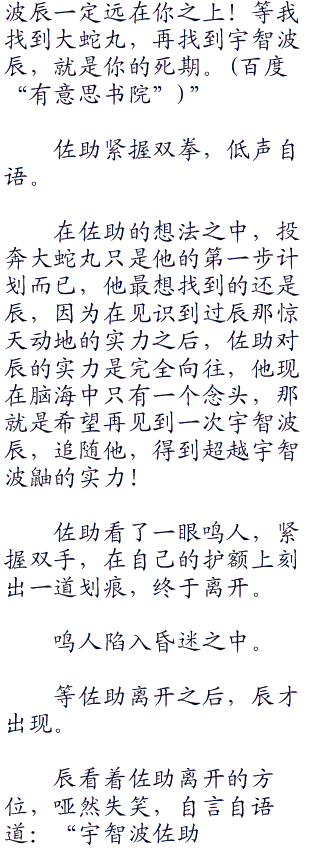 波辰一定远在你之上！等我
找到大蛇丸，再找到宇智波
辰，就是你的死期。(百度
“有意思书院”)”
佐助紧握双拳，低声自
语。
在佐助的想法之中，投
奔大蛇丸只是他的第一步计
划而已，他最想找到的还是
辰，因为在见识到过辰那惊
天动地的实力之后，佐助对
辰的实力是完全向往，他现
在脑海中只有一个念头，那
就是希望再见到一次宇智波
辰，追随他，得到超越宇智
波鼬的实力！
佐助看了一眼鸣人，紧
握双手，在自己的护额上刻
出一道划痕，终于离开。
鸣人陷入昏迷之中。
等佐助离开之后，辰才
出现。
辰看着佐助离开的方
位，哑然失笑，自言自语
道：“宇智波佐助